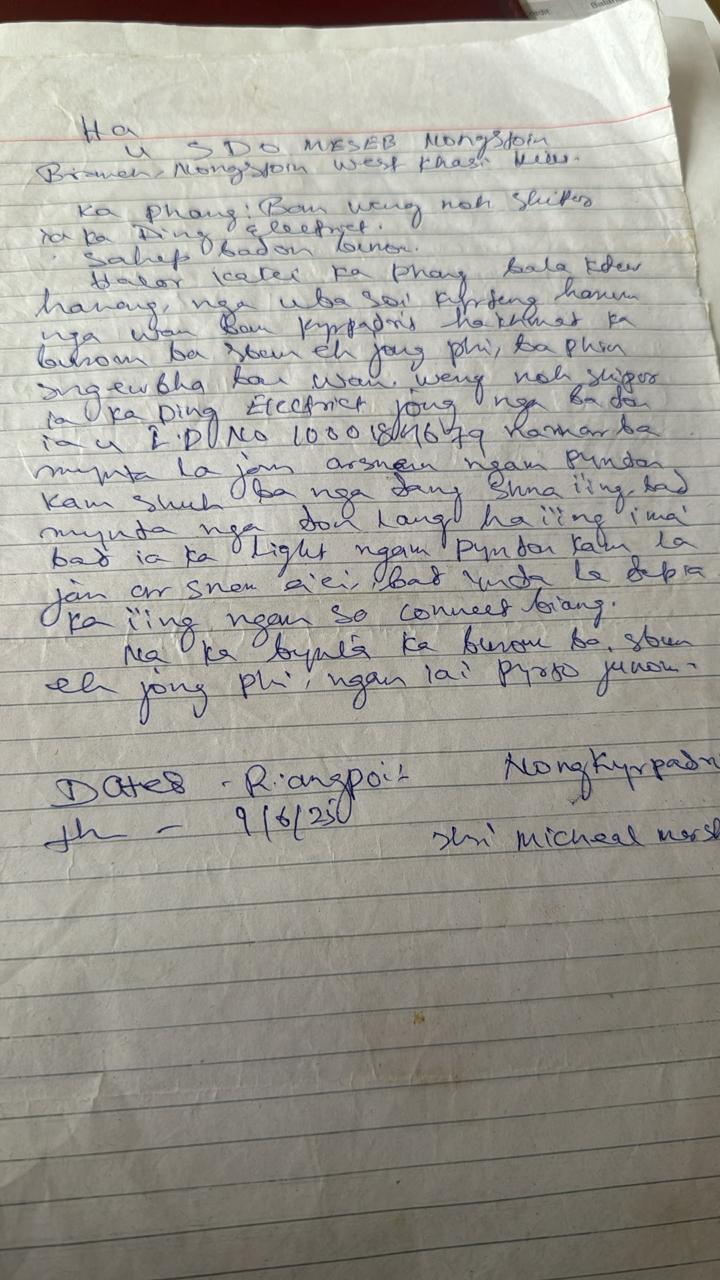 Ha
u SDO MESEB Nongstoin
Branch, Nongstoin West Khasi Hills.
Ka phang: Ban weng noh shipor
ia ka Ding Electrict.
Sahep badon burom.
Halor katei ka phang bala kdew
haneng, nga uba soi kyrteng harum
nga wan ban kyrpad ha khmat ka
burom ba sbun eh jong phi, ba phin
sngewbha ban wan weng noh shipor
ia ka Ding Electrict jong nga ba don
ia u I.D No namar ba
mynta la jan arsnem ngam pyndon
kam shuh ba nga dang shna ïing, bad
mynta nga don lang ha ïing
bad ia ka light ngam pyndon kam la
jan ar snem eiei, bad ynda la dep ia
ka ïing ngam so connect biang.
Na ka bynta ka burom ba sbun
eh jong phi, ngan iai pyrto junom.
Dated - Riangpoit Nongkyrpad
th - 9/6/25
Shri Micheal